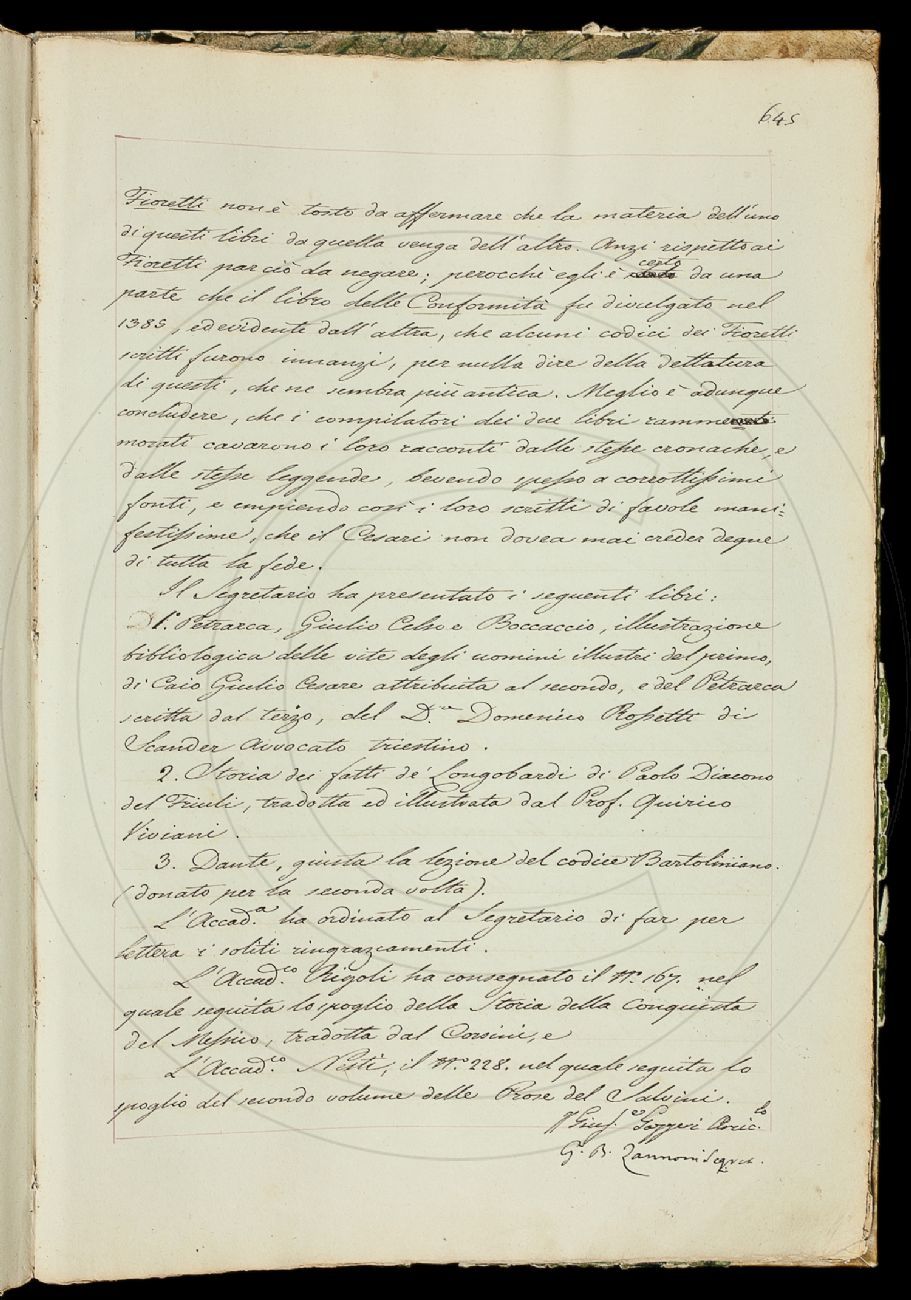 645
Fioretti non è tosto da affermare che la materia dell'uno
di questi libri da quella venga dell'altro. Anzi rispetto ai
Fioretti par ciò da negare; perocchè egli è certo da una
parte che il libro delle Conformità fu divulgato nel
1385, ed evidente dall'altra, che alcuni codici dei Fioretti
scritti furono innanzi, per nulla dire della dettatura
di questi, che ne sembra più antica. Meglio è adunque
concludere, che i compilatori dei due libri ramme
morati cavarono i loro racconti dalle stesse cronache, e
dalle stesse leggende, bevendo spesso a corrottissimi
fonti, e empiendo così i loro scritti di favole mani=
festissime, che il Cesari non dovea mai creder degne
di tutta la fede.
Il Segretario ha presentato i seguenti libri:
1. Petrarca, Giulio Celso e Boccaccio, illustrazione
bibliologica delle vite degli uomini illustri del primo,
di Caio Giulio Cesare attribuita al secondo, e del Petrarca
scritta dal terzo, del D.r Domenico Rossetti di
Scander Avvocato triestino.
2. Storia dei fatti de' Longobardi di Paolo Diacono
del Friuli, tradotta ed illustrata dal Prof. Quirico
Viviani.
3. Dante, giusta la lezione del codice Bartoliniano.
(donato per la seconda volta).
L'Accad.a ha ordinato al Segretario di far per
lettera i soliti ringraziamenti.
L'Accad.co Rigoli ha consegnato il N.o 167. nel
quale seguita lo spoglio della Storia della Conquista
del Messico, tradotta dal Corsini, e
L'Accad.co Nesti, il N.o 228. nel quale seguita lo
spoglio del secondo volume delle Prose del Salvini.
G. B. Zannoni Segret.